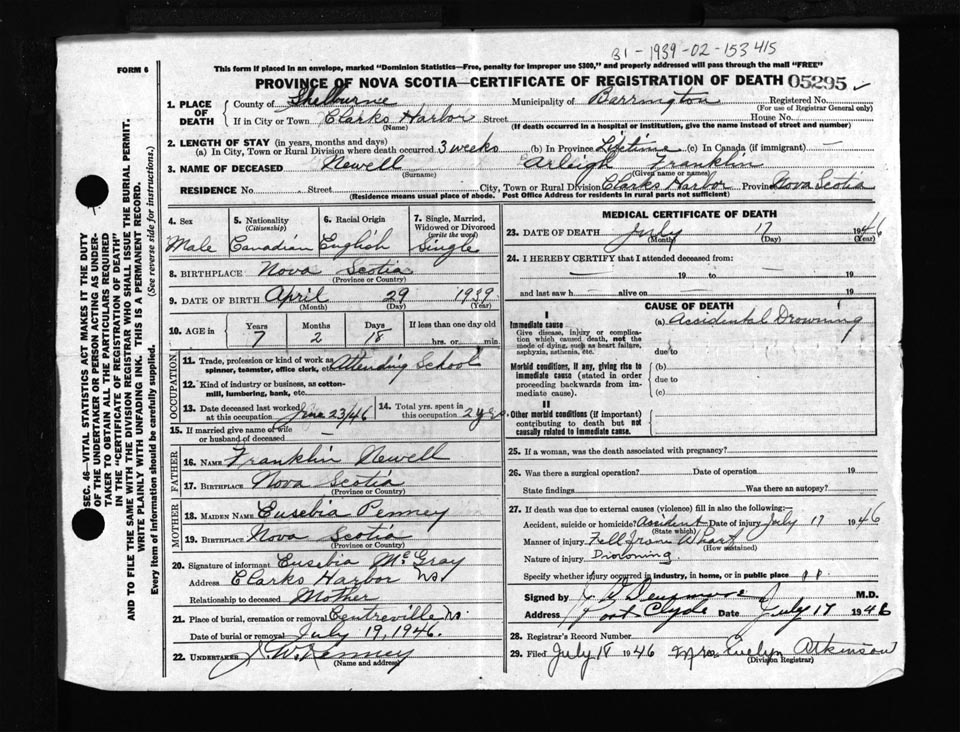 B1-1939-02-153415
FORM 6
This form if placed in an envelope, marked "Dominion Statistics—Free, penalty for improper use $300," and properly addressed will pass through the mail "FREE"
PROVINCE OF NOVA SCOTIA—CERTIFICATE OF REGISTRATION OF DEATH 05295
1. PLACE OF DEATH County of Shelburne Municipality of Barrington Registered No.
(For use of Registrar General only)
If in City or Town Clarks Harbor Street House No.
(Name) (If death occurred in a hospital or institution, give the name instead of street and number)
2. LENGTH OF STAY (in years, months and days)
(a) In City, Town or Rural Division where death occurred 3 weeks (b) In Province Lifetime (c) In Canada (if immigrant) —
3. NAME OF DECEASED Newell Arleigh Franklin
(Surname) (Given name or names)
RESIDENCE No. Street City, Town or Rural Division Clarks Harbor Province Nova Scotia
(Residence means usual place of abode. Post Office Address for residents in rural parts not sufficient)
4. Sex 5. Nationality (Citizenship) 6. Racial Origin 7. Single, Married, Widowed or Divorced (write the word)
Male Canadian English Single
8. BIRTHPLACE Nova Scotia
(Province or Country)
9. DATE OF BIRTH April 29 1939
(Month) (Day) (Year)
10. AGE in Years Months Days If less than one day old
7 2 18 hrs. or min.
OCCUPATION
11. Trade, profession or kind of work as spinner, teamster, office clerk, etc. Attending School
12. Kind of industry or business, as cotton-mill, lumbering, bank, etc.
13. Date deceased last worked at this occupation June 23/46 14. Total yrs. spent in this occupation 2 yrs.
15. If married give name of wife or husband of deceased —
FATHER
16. NAME Franklin Newell
17. BIRTHPLACE Nova Scotia
(Province or Country)
MOTHER
18. MAIDEN NAME Eusebia Penney
19. BIRTHPLACE Nova Scotia
(Province or Country)
20. Signature of informant Eusebia McGray
Address Clarks Harbor NS
Relationship to deceased Mother
21. Place of burial, cremation or removal Centreville NS
Date of burial or removal July 19, 1946.
22. UNDERTAKER J W Kenney
(Name and address)
MEDICAL CERTIFICATE OF DEATH
23. DATE OF DEATH July 17 1946
(Month) (Day) (Year)
24. I HEREBY CERTIFY that I attended deceased from:
— 19 to — 19
and last saw h— alive on — 19
CAUSE OF DEATH
I
Immediate cause (a) Accidental Drowning
Give disease, injury or complication which caused death, not the mode of dying, such as heart failure, asphyxia, asthenia, etc.
due to
Morbid conditions, if any, giving rise to immediate cause (stated in order proceeding backwards from immediate cause).
(b)
due to
(c)
II
Other morbid conditions (if important) contributing to death but not causally related to immediate cause.
25. If a woman, was the death associated with pregnancy?
26. Was there a surgical operation? Date of operation 19
State findings Was there an autopsy?
27. If death was due to external causes (violence) fill in also the following:
Accident, suicide or homicide? Accident Date of injury July 17 1946
(State which)
Manner of injury Fell from Wharf
(How sustained)
Nature of injury Drowning
Specify whether injury occurred in industry, in home, or in public place
Signed by M.D.
Address Port Clyde Date July 17 1946
28. Registrar's Record Number
29. Filed July 18 1946 Mrs Evelyn Atkinson
(Division Registrar)
SEC. 46—VITAL STATISTICS ACT MAKES IT THE DUTY
OF THE UNDERTAKER OR PERSON ACTING AS UNDER-
TAKER TO OBTAIN ALL THE PARTICULARS REQUIRED
IN THE "CERTIFICATE OF REGISTRATION OF DEATH"
AND TO FILE THE SAME WITH THE DIVISION REGISTRAR WHO SHALL ISSUE THE BURIAL PERMIT.
WRITE PLAINLY WITH UNFADING INK. THIS IS A PERMANENT RECORD.
Every item of information should be carefully supplied. (See reverse side for instructions.)